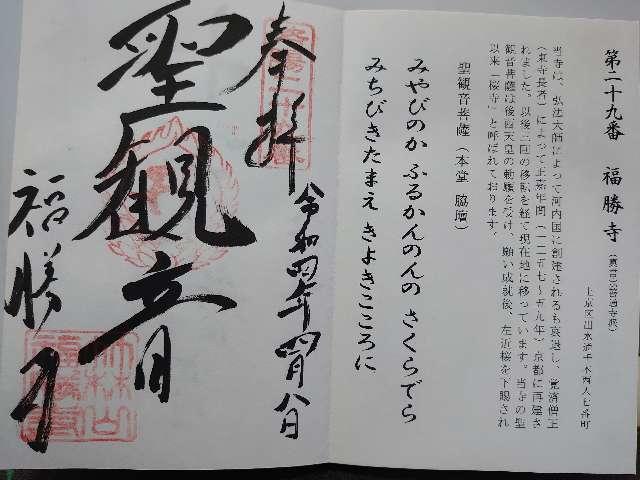 第二十九番 福勝寺 (真言宗善通寺派)
上京区出水通千本西入七番町
当寺は、弘法大師によって河内国に創建されるも衰退し、覚済僧正
(東寺長者)によって正嘉年間(一二五七〜五九年)京都に再建さ
れました。以後三回の移転を経て現在地に移っています。当寺の聖
観音菩薩は後西天皇の勅願を受け、願い成就後、左近桜を下賜され
以来「桜寺」と呼ばれております。
聖観音菩薩(本堂 脇壇)
みやびのか ふるかんのんの さくらでら
みちびきたまえ きよきこころに
奉拝
令和四年四月八日
聖観音
福勝寺